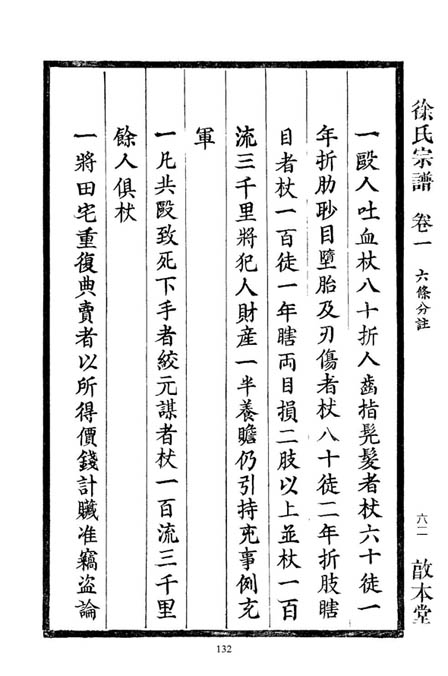 徐氏宗譜 卷一 六條分註 六二 敦本堂
一毆人吐血杖八十折人齒指髡髮者杖六十徒一
年折肋眇目墮胎及刃傷者杖八十徒二年折肢瞎
目者杖一百徒一年瞎両目損二肢以上並杖一百
流三千里將犯人財産一半養贍仍引持兇事例充
軍
一凡共毆致死下手者絞元謀者杖一百流三千里
餘人俱杖
一將田宅重復典賣者以所得價錢計贓准竊盜論
132